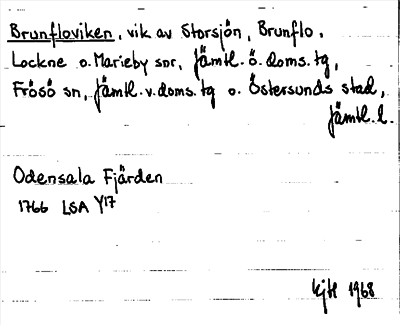 Brunfloviken, vik av Storsjön, Brunflo,
Lockne o. Marieby snr, Jämtl. ö. doms. tg,
Frösö sn, Jämtl. v. doms. tg o. Östersunds stad,
Jämtl. l.
Odensala Fjärden
1766 LSA Y17
KjH 1968